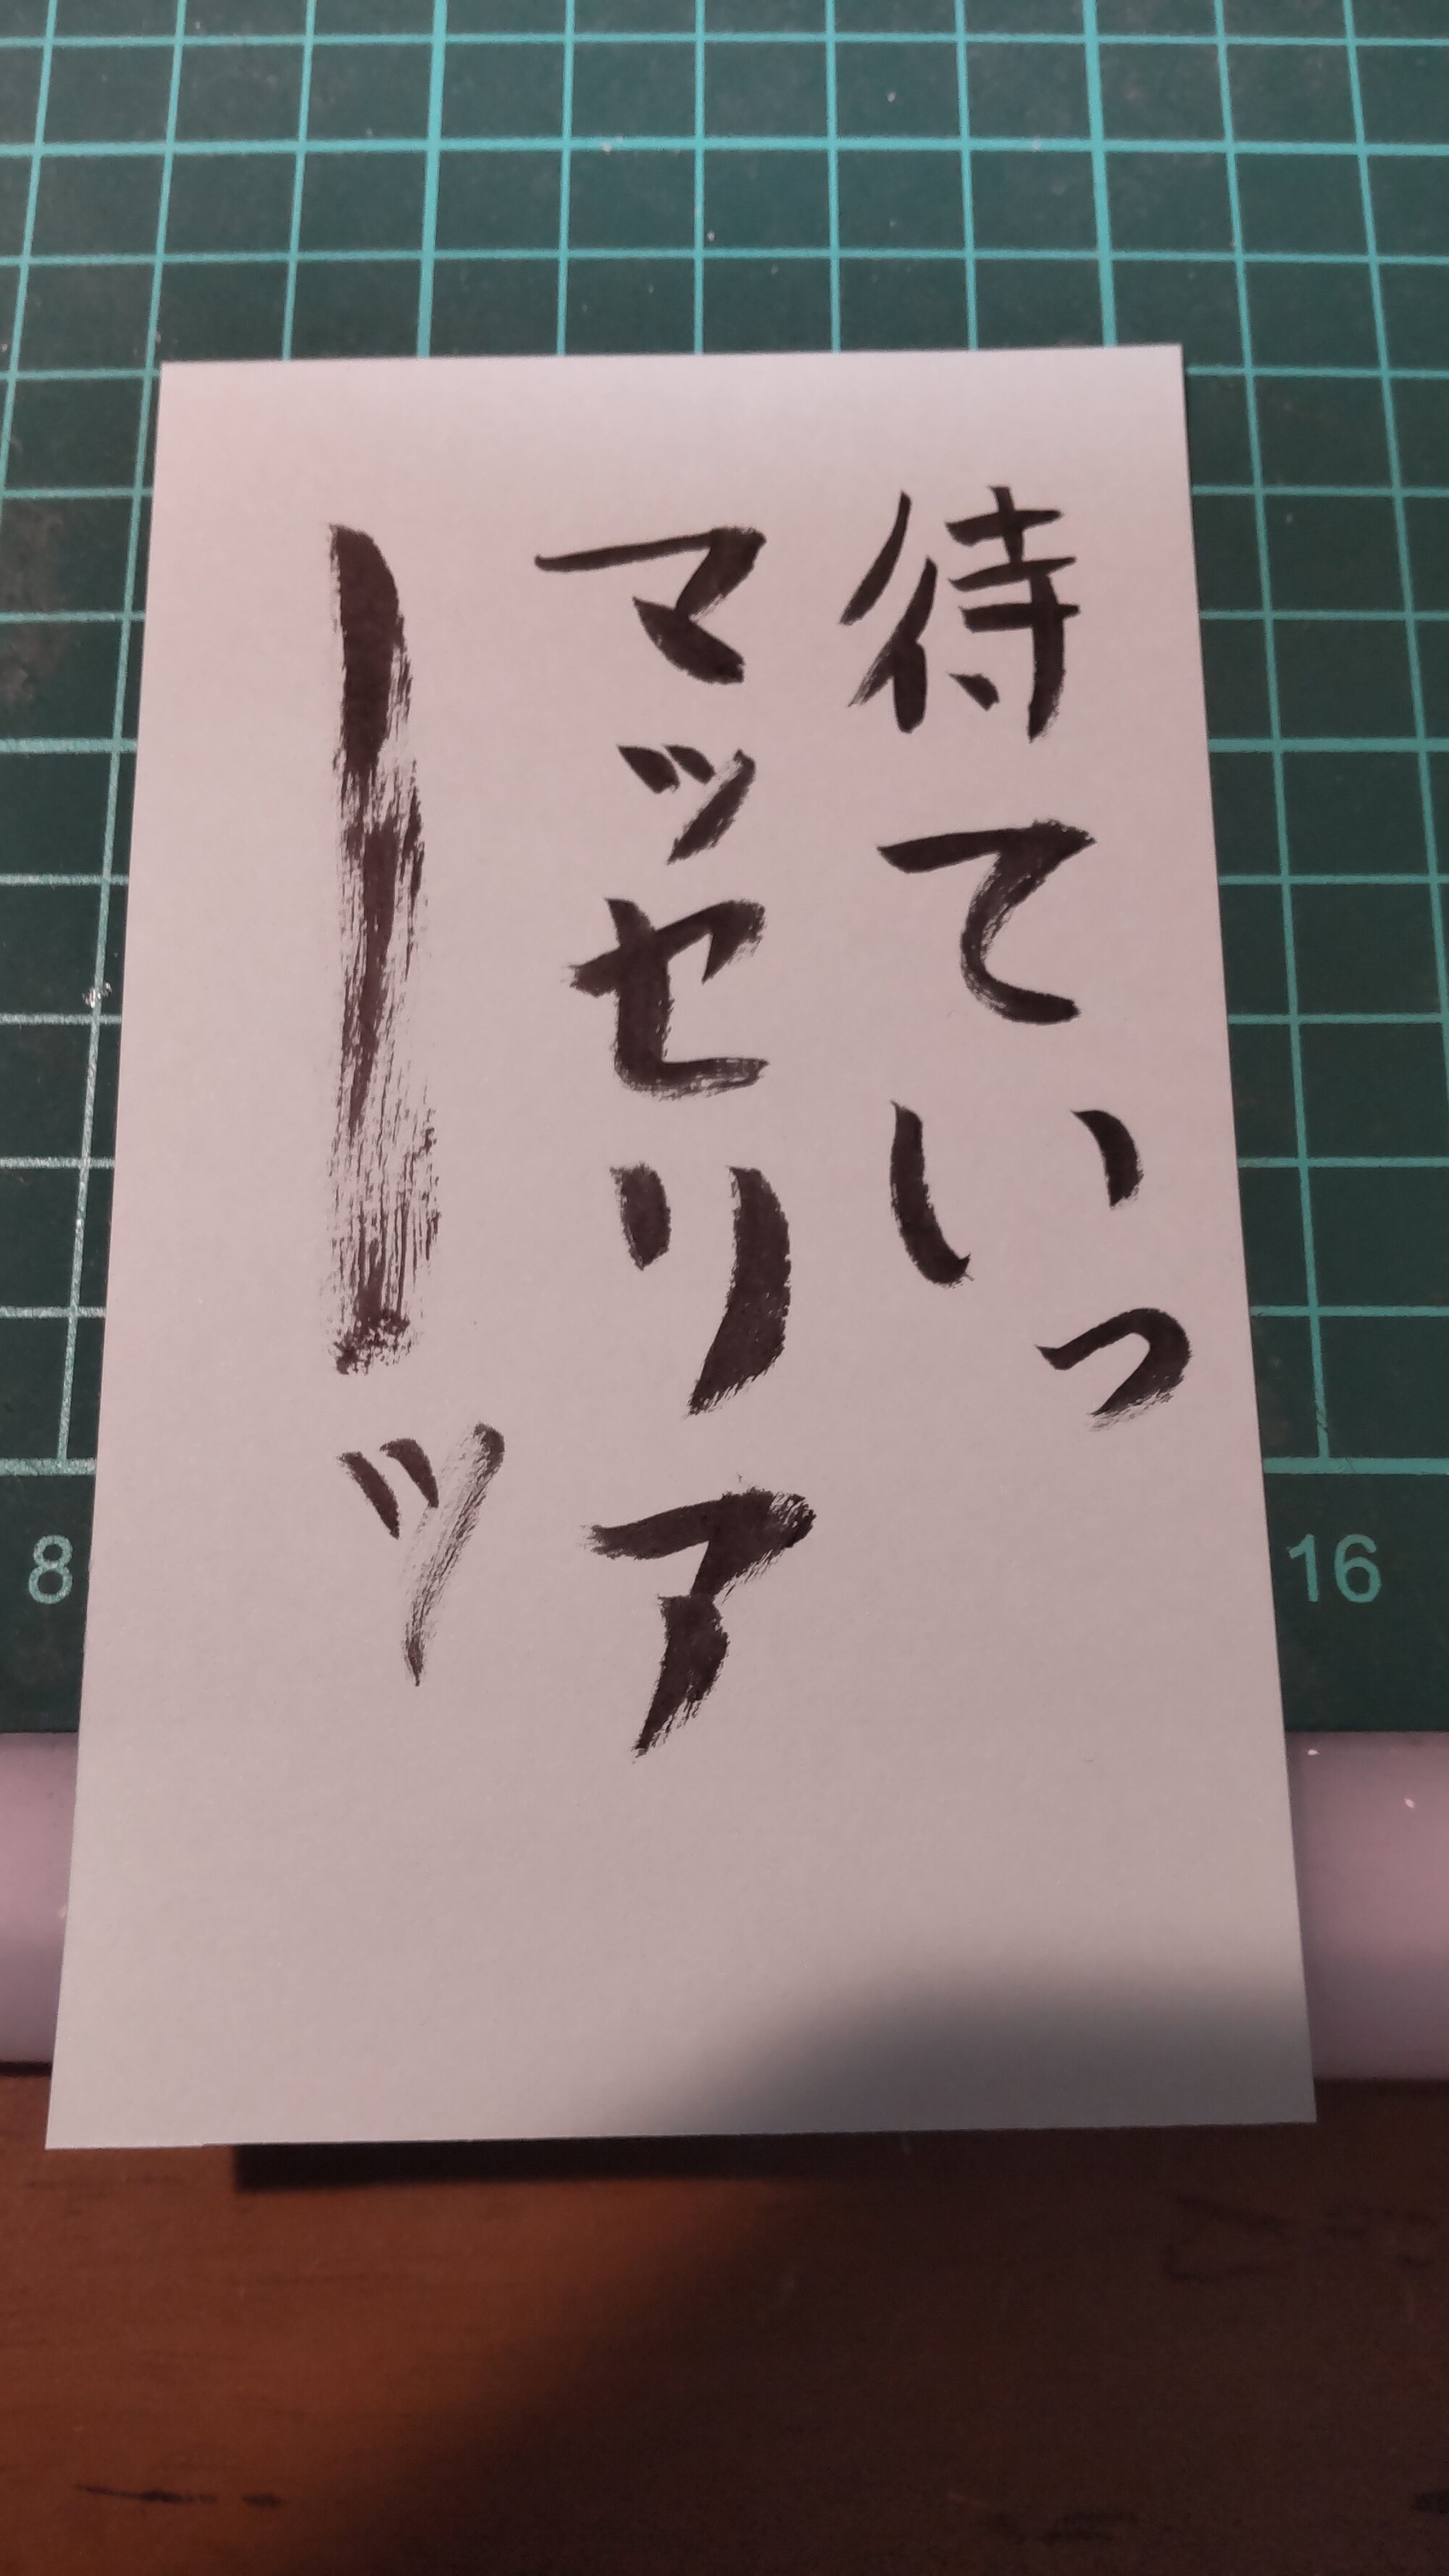 待ていっ
マッセリア
ーッ
8 16